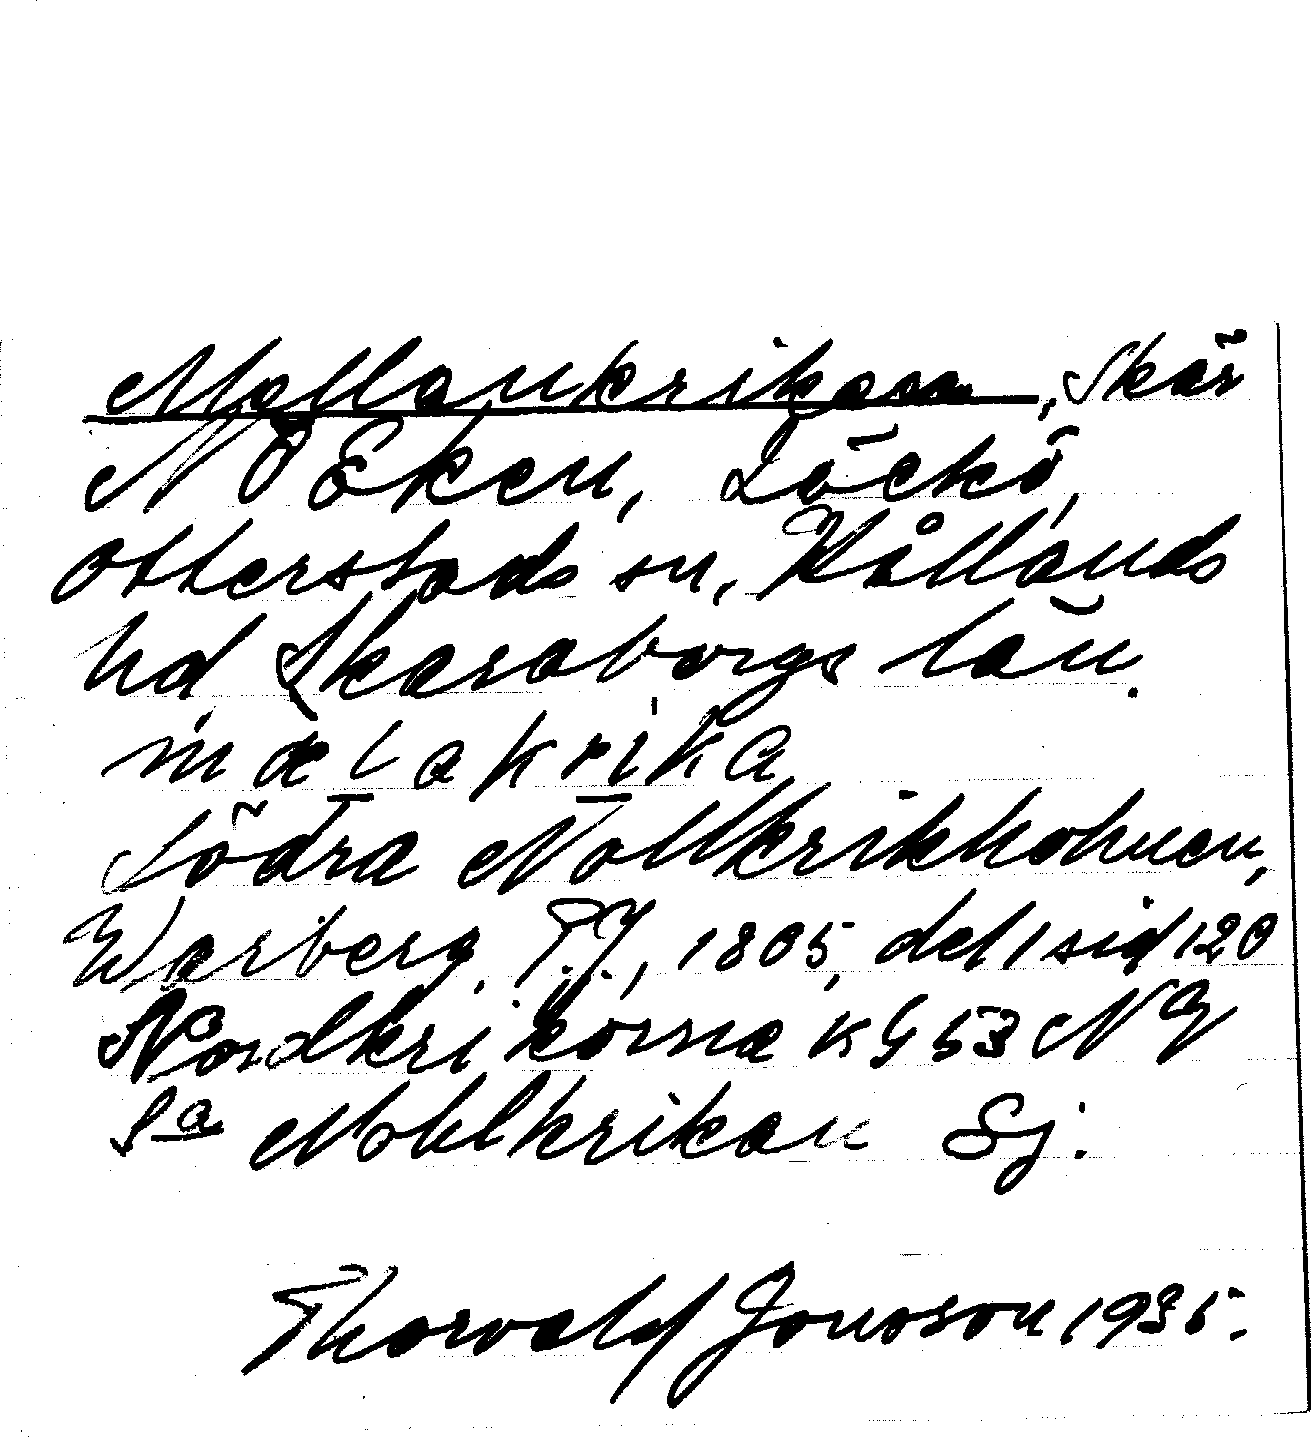 Mellankrikan, Skär
N Ö Eken, Läckö,
Otterstads sn, Kållands
hd Skaraborgs län.
mælakrika
Södra Nollkrikholmen,
Warberg, T.Y., 1805, del 1 sid 120
Nordkrikorna KG 53 NY
Sa Mohlkrikan Sj.
Thorvald Jonsson 1935.